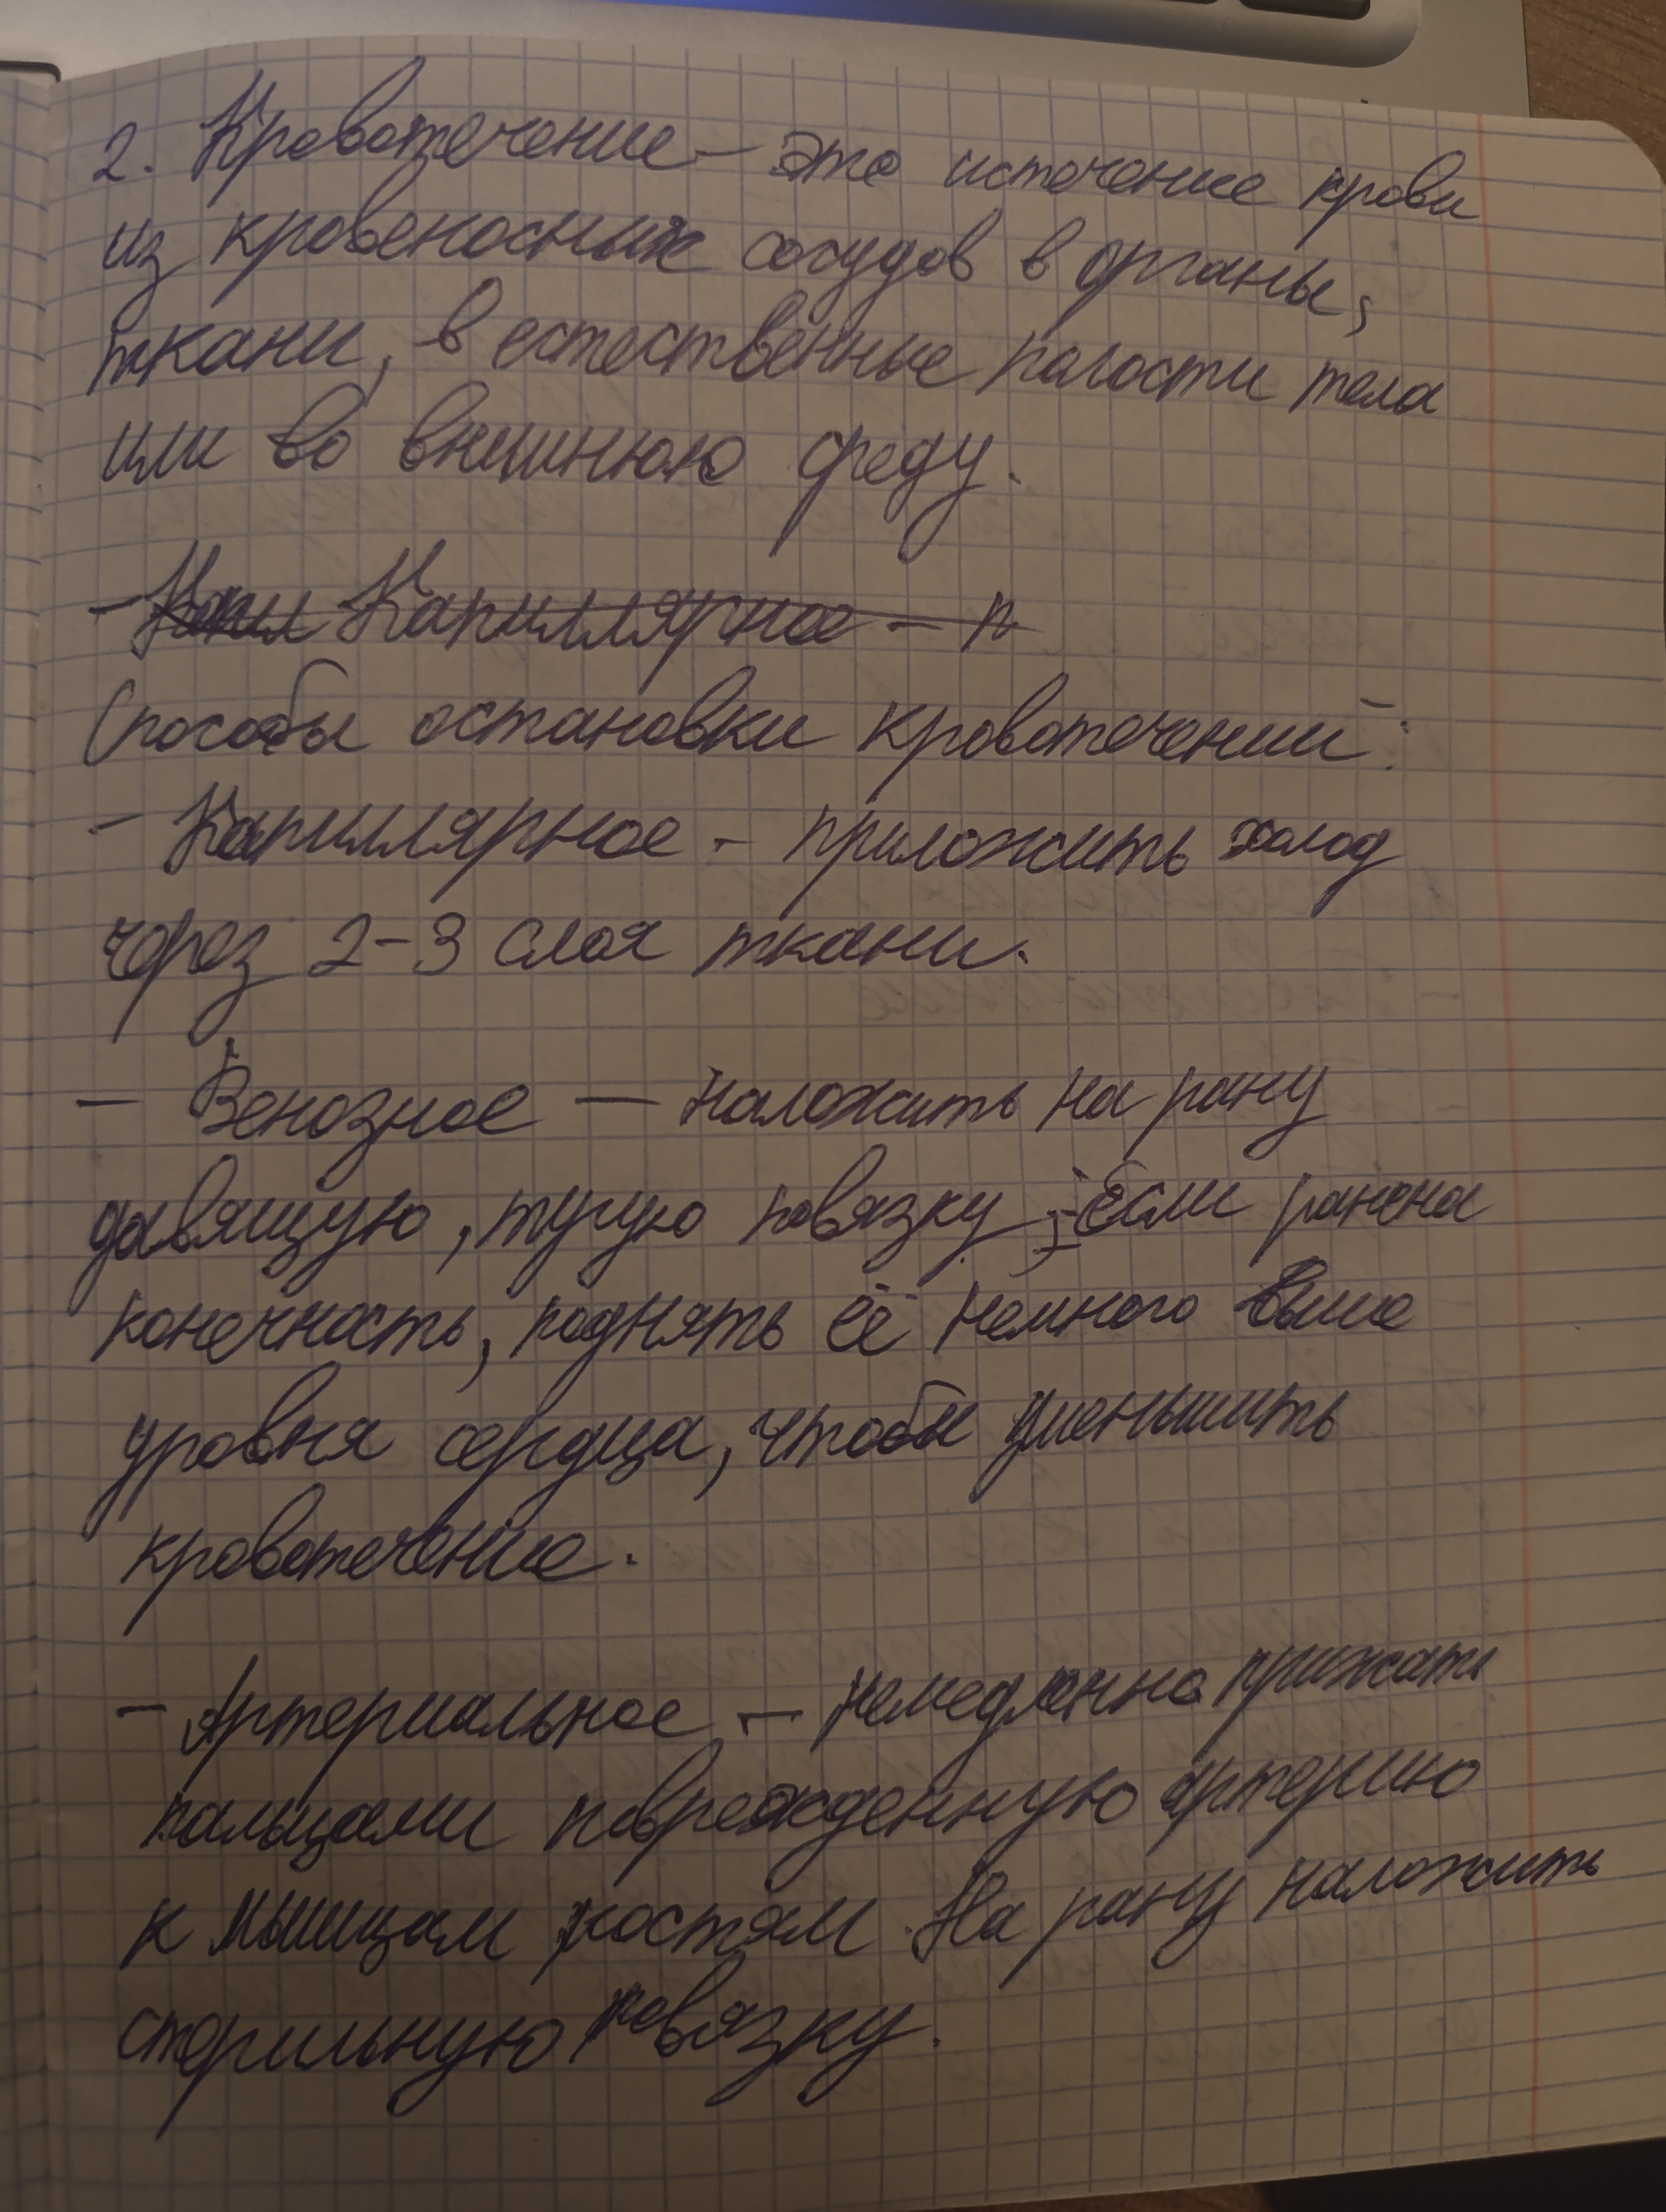 2. Кровотечение – это истечение крови
из кровеносных сосудов в органы,
ткани, в естественные полости тела
или во внешнюю среду.
- Капил Капиллярное – п
Способы остановки кровотечений:
- Капиллярное - приложить холод
через 2-3 слоя ткани.
- Венозное – наложить на рану
давящую, тугую повязку; если ранена
конечность, поднять её немного выше
уровня сердца, чтобы уменьшить
кровотечение.
- Артериальное – немедленно прижать
пальцами повреждённую артерию
к мышцам костям. На рану наложить
стерильную повязку.